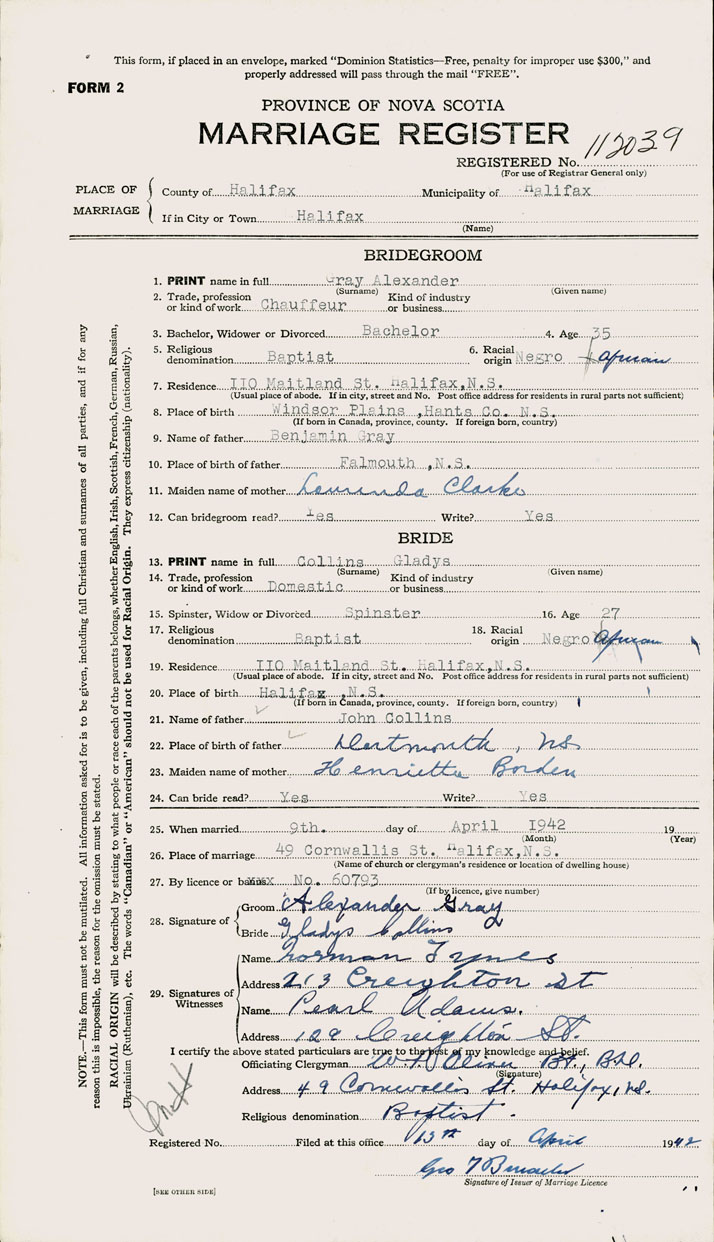 This form, if placed in an envelope, marked "Dominion Statistics—Free, penalty for improper use $300," and
properly addressed will pass through the mail "FREE".
FORM 2
PROVINCE OF NOVA SCOTIA
MARRIAGE REGISTER
REGISTERED No. 112039
(For use of Registrar General only)
PLACE OF MARRIAGE
County of Halifax Municipality of Halifax
If in City or Town Halifax
(Name)
BRIDEGROOM
1. PRINT name in full Gray Alexander
(Surname) (Given name)
2. Trade, profession or kind of work Chauffeur Kind of industry or business
3. Bachelor, Widower or Divorced Bachelor 4. Age 35
5. Religious denomination Baptist 6. Racial origin Negro African
7. Residence IIO Maitland St. Halifax,N.S.
(Usual place of abode. If in city, street and No. Post office address for residents in rural parts not sufficient)
8. Place of birth Windsor Plains ,Hants Co. N.S.
(If born in Canada, province, county. If foreign born, country)
9. Name of father Benjamin Gray
10. Place of birth of father Falmouth ,N.S.
11. Maiden name of mother Clarke
12. Can bridegroom read? Yes Write? Yes
BRIDE
13. PRINT name in full Collins Gladys
(Surname) (Given name)
14. Trade, profession or kind of work Domestic Kind of industry or business
15. Spinster, Widow or Divorced Spinster 16. Age 27
17. Religious denomination Baptist 18. Racial origin Negro African
19. Residence IIO Maitland St. Halifax,N.S.
(Usual place of abode. If in city, street and No. Post office address for residents in rural parts not sufficient)
20. Place of birth Halifax ,N.S.
(If born in Canada, province, county. If foreign born, country)
21. Name of father John Collins
22. Place of birth of father Dartmouth, NS
23. Maiden name of mother Henrietta Borden
24. Can bride read? Yes Write? Yes
25. When married 9th. day of April I942 19
(Month) (Year)
26. Place of marriage 49 Cornwallis St. Halifax,N.S.
(Name of church or clergyman's residence or location of dwelling house)
27. By licence or banns No. 60793
(If by licence, give number)
28. Signature of
Groom Alexander Gray
Bride Gladys Collins
29. Signatures of Witnesses
Name Norman Tynes
Address 213 Creighton St
Name Pearl Adams.
Address 129 Creighton St.
I certify the above stated particulars are true to the best of my knowledge and belief.
Officiating Clergyman W. P. Oliver BA., B.D.
(Signature)
Address 49 Cornwallis St. Halifax, N.S.
Religious denomination Baptist.
Registered No. Filed at this office 13th day of April 1942
Geo
Signature of Issuer of Marriage Licence
[SEE OTHER SIDE]
NOTE.—This form must not be mutilated. All information asked for is to be given, including full Christian and surnames of all parties, and if for any
reason this is impossible, the reason for the omission must be stated.
RACIAL ORIGIN will be described by stating to what people or race each of the parents belongs, whether English, Irish, Scottish, French, German, Russian,
Ukrainian (Ruthenian), etc. The words "Canadian" or "American" should not be used for Racial Origin. They express citizenship (nationality).